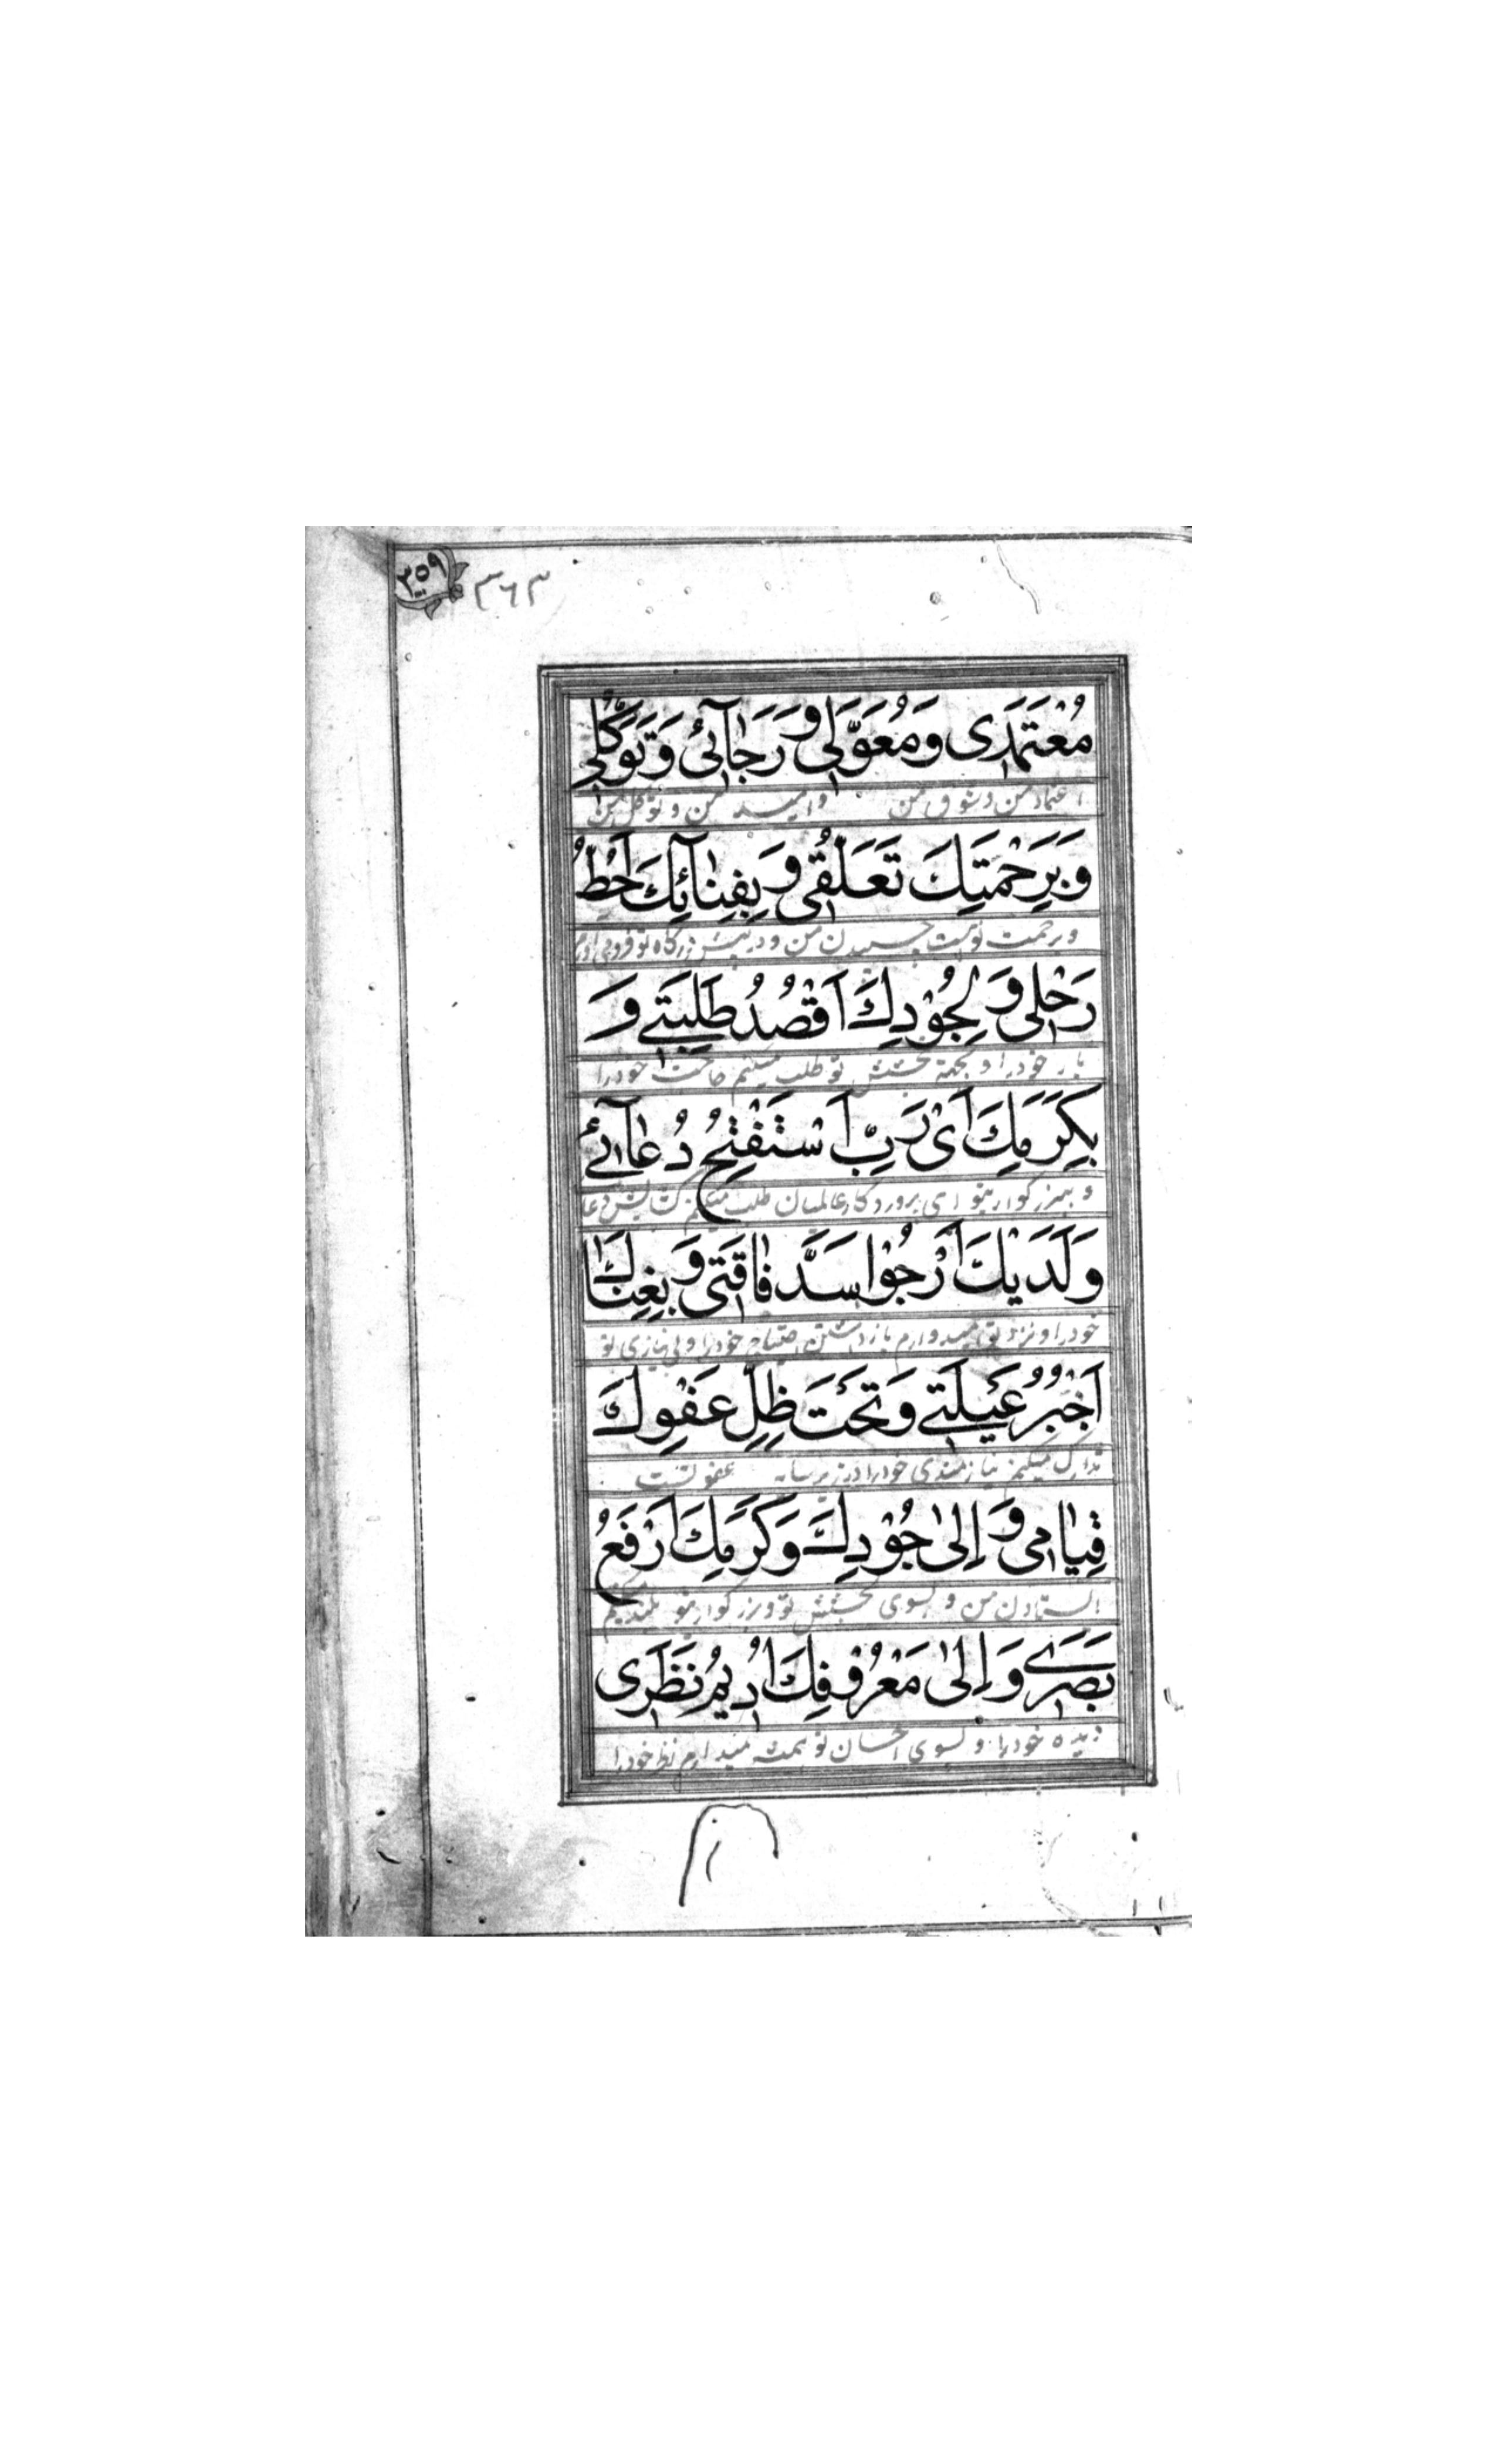 ٣٥٩
٣٦٣
مُعْتَمَدَی وَمُعَوَّلِی وَرَجٰآئی وَتَوَکُّلِی
اعتماد من و من و امید من و توکل من
وَبِرَحْمَتِكَ تَعَلُّقِی وَبِفِنٰآئِكَ اَحُطُّ
و برحمت تست چسبیدن من و در پیش درگاه تو فرود می ارم
رَحْلِی وَلِجُوْدِكَ اَقْصُدُ طَلِبَتِے وَ
بار خودرا و بخشش تو طلب میکنم حاجت خودرا
بِكَرَمِكَ اَیْ رَبِّ اَسْتَفْتِحُ دُعٰآئے
و ببزرگواریتو ای پروردگار عالمیان طلب میکنم گشایش دعا
وَلَدَیْكَ اَرْجُوْا سَدَّ فٰاقَتِی وَبِغِنٰاكَ
خودرا و نزد تو امیدوارم بازداشتن احتیاج خودرا و بی نیازی تو
اَجْبُرُ عَیْلَتِے وَتَحْتَ ظِلِّ عَفْوِكَ
تدارک میکنم نیازمندی خودرا در زیر سایه عفو تست
قِیٰامِی وَاِلیٰ جُوْدِكَ وَكَرَمِكَ اَرْفَعُ
ایستادن من و بسوی بخشش تو و بزرگواریتو بلند میکنم
بَصَرَے وَاِلیٰ مَعْرُوْفِكَ اُدِیْمُ نَظَرَی
دیده خودرا و بسوی احسان تو همیشه میدارم نظر خودرا